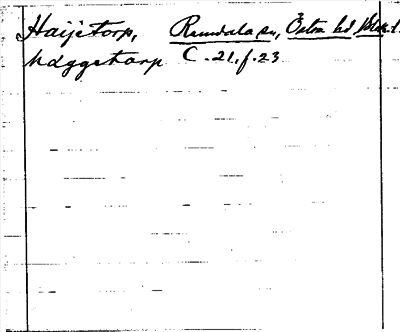 Haijetorp, Ramdala sn, Östra hd Blek.
Häggetorp C.21.f.23